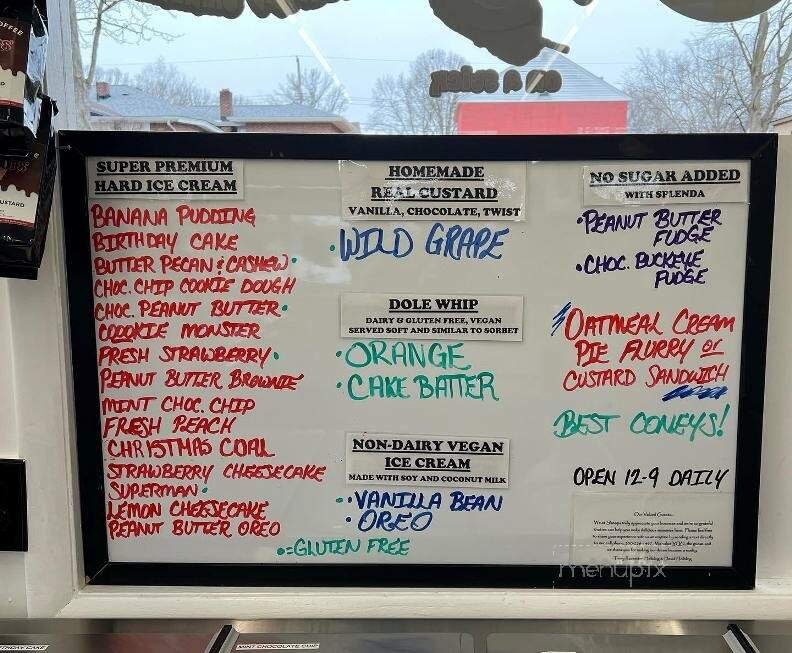 SUPER PREMIUM
HARD ICE CREAM
BANANA PUDDING
BIRTHDAY CAKE
BUTTER PECAN & CASHEW •
CHOC. CHIP COOKIE DOUGH
CHOC. PEANUT BUTTER •
COOOKIE MONSTER
FRESH STRAWBERRY •
PEANUT BUTTER BROWNIE
MINT CHOC. CHIP
FRESH PEACH
CHRISTMAS COAL
STRAWBERRY CHEESECAKE
SUPERMAN •
LEMON CHEESECAKE
PEANUT BUTTER OREO
• = GLUTEN FREE
HOMEMADE
REAL CUSTARD
VANILLA, CHOCOLATE, TWIST
• WILD GRAPE
DOLE WHIP
DAIRY & GLUTEN FREE, VEGAN
SERVED SOFT AND SIMILAR TO SORBET
• ORANGE
• CAKE BATTER
NON-DAIRY VEGAN
ICE CREAM
MADE WITH SOY AND COCONUT MILK
• VANILLA BEAN
• OREO
NO SUGAR ADDED
WITH SPLENDA
• PEANUT BUTTER
FUDGE
• CHOC. BUCKEYE
FUDGE
OATMEAL CREAM
PIE FLURRY OR
CUSTARD SANDWICH
BEST CONEYS!
OPEN 12-9 DAILY
Our Valued Guests,
menupix
MINT CHOCOLATE CHIP